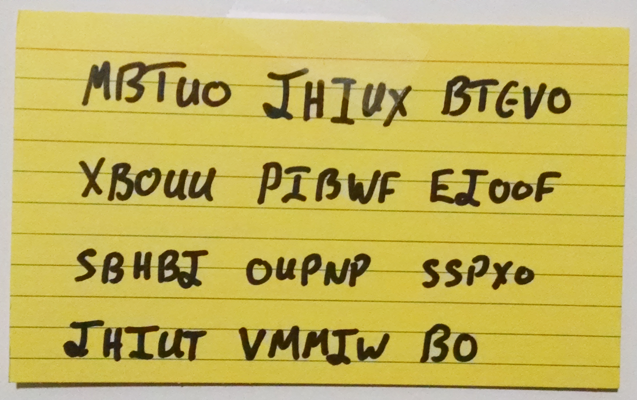 MBTUO JHIUX BTGVO
XBOUU PIBWF EJOOF
SBHBJ OUPNP SSPXO
JHIUT VMMJW BO